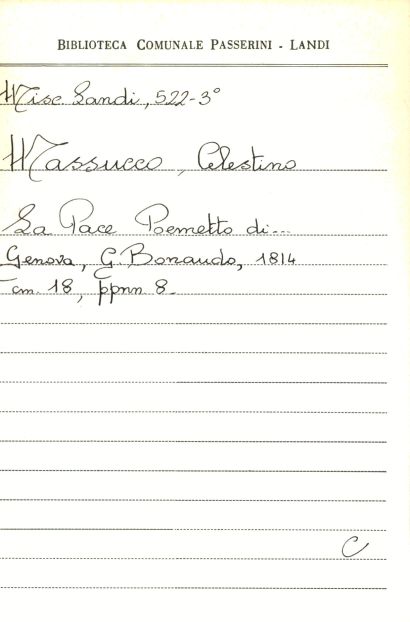 BIBLIOTECA COMUNALE PASSERINI - LANDI
Misc. Landi, 522-3°
Massucco, Celestino
La Pace Poemetto di...
Genova, G. Bonaudo, 1814
cm. 18, ppnn. 8.
C